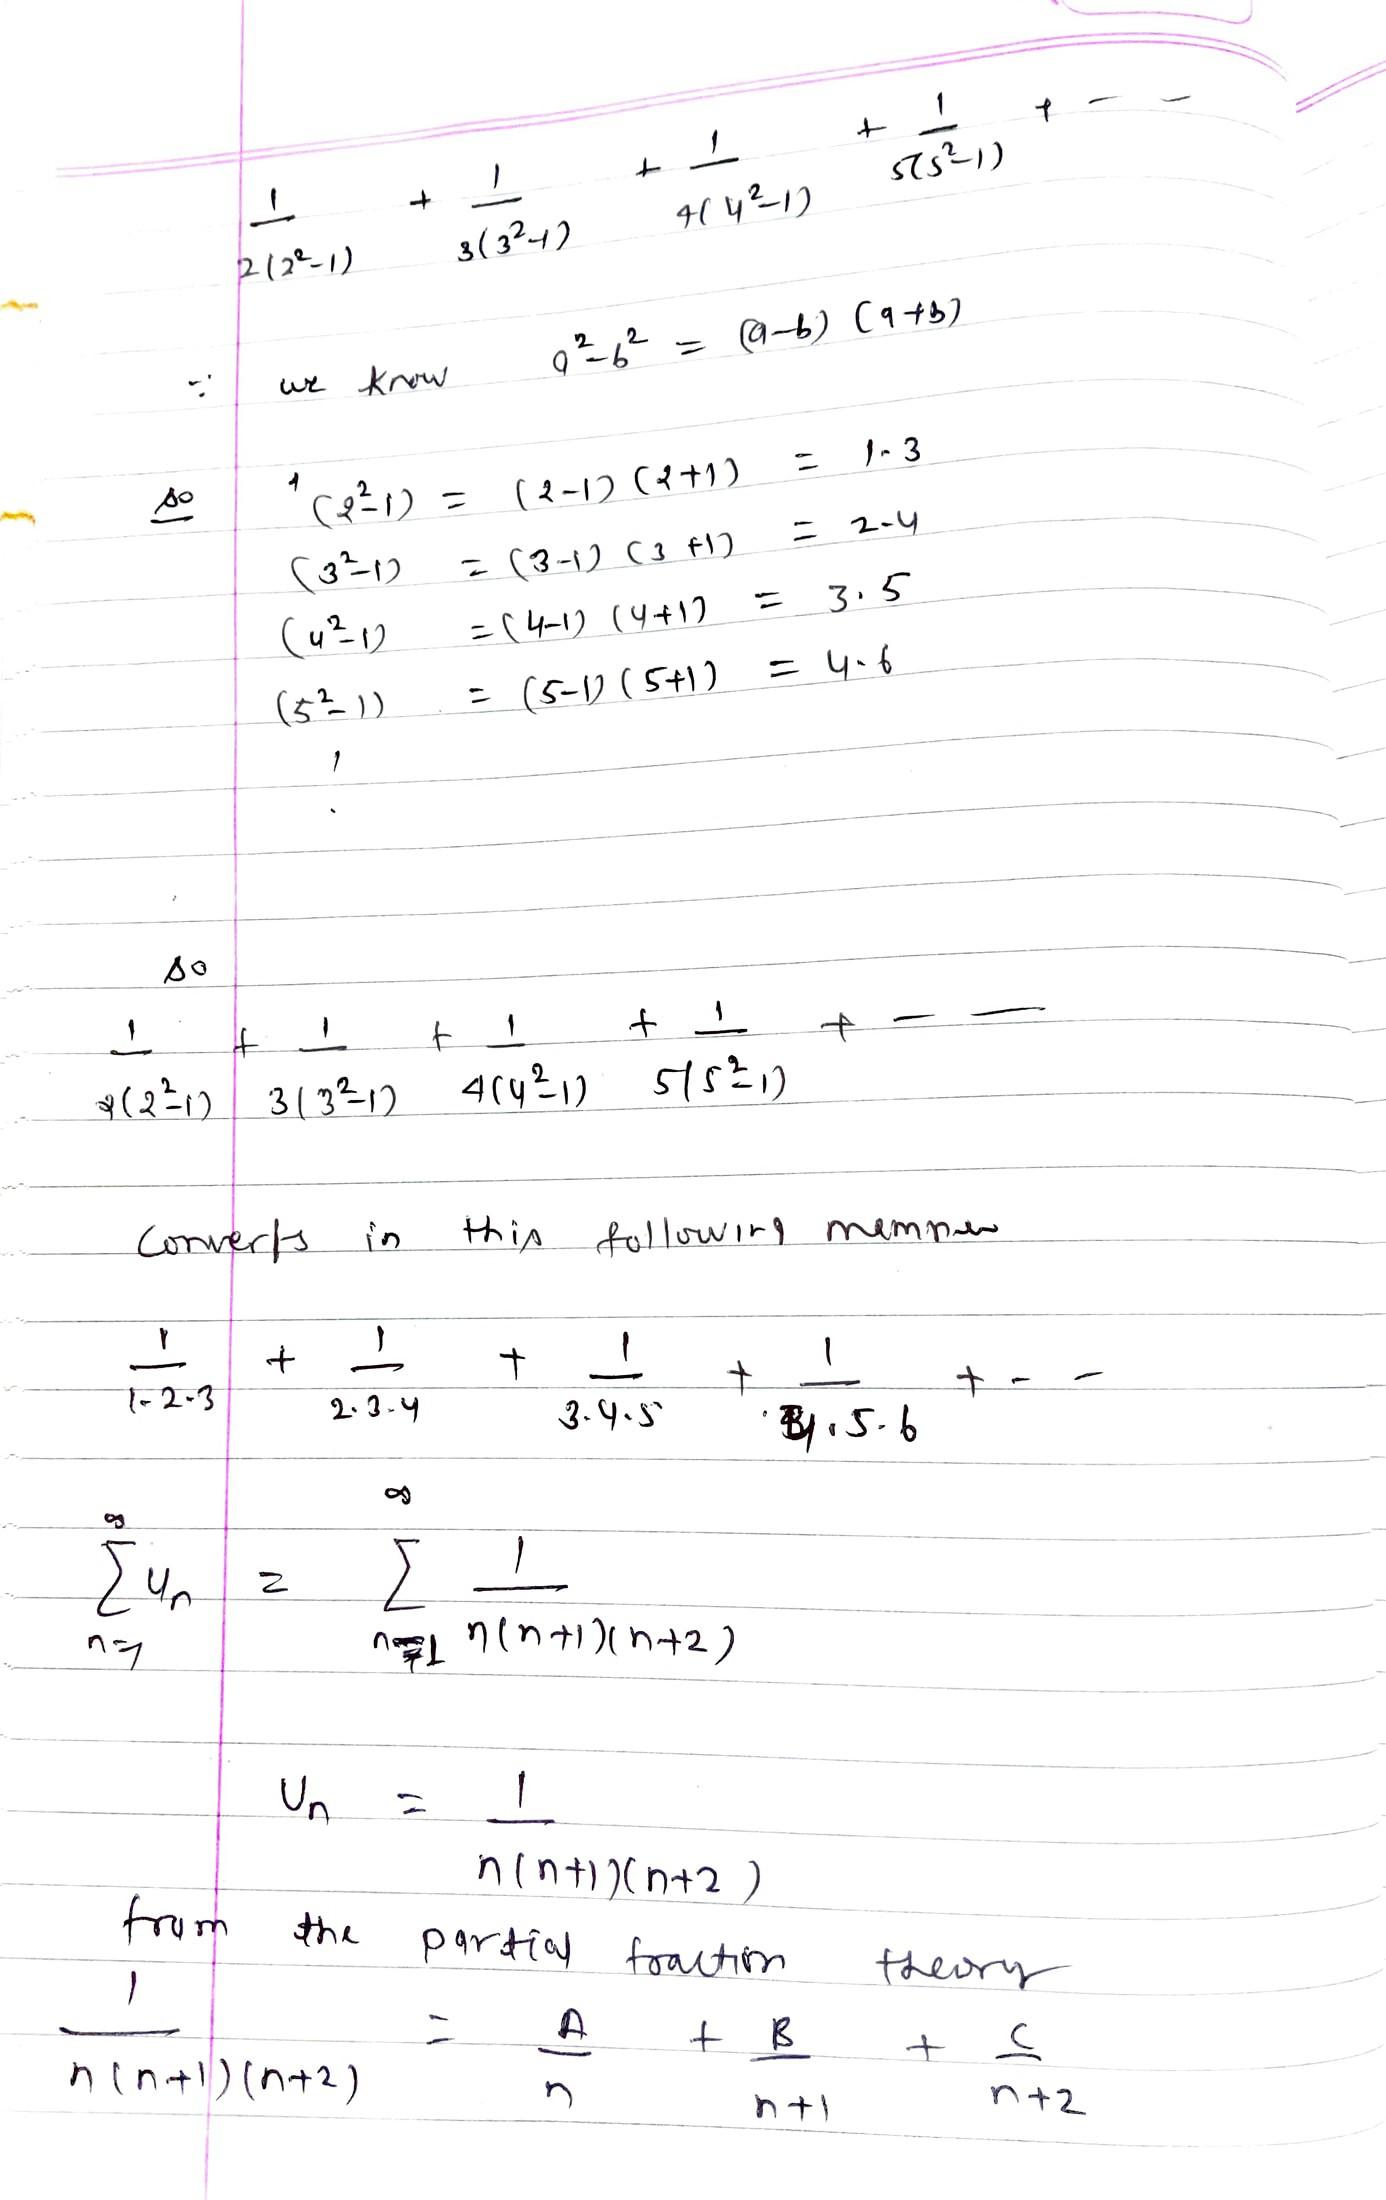 1/2(2²-1) + 1/3(3²-1) + 1/4(4²-1) + 1/5(5²-1) + - -
∵ we know a²-b² = (a-b) (a+b)
so (2²-1) = (2-1) (2+1) = 1.3
(3²-1) = (3-1) (3+1) = 2.4
(4²-1) = (4-1) (4+1) = 3.5
(5²-1) = (5-1) (5+1) = 4.6
so
1/2(2²-1) + 1/3(3²-1) + 1/4(4²-1) + 1/5(5²-1) + - -
Converts in this following
1/1.2.3 + 1/2.3.4 + 1/3.4.5 + 1/4.5.6 + - -
∞ ∑ n=1 un = ∞ ∑ n=1 1/n(n+1)(n+2)
Un = 1/n(n+1)(n+2)
from the partial fraction theory
1/n(n+1)(n+2) = A/n + B/n+1 + C/n+2